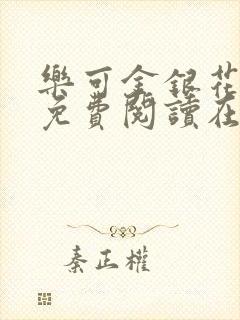 樂可金銀花
免費閱讀在
秦正權